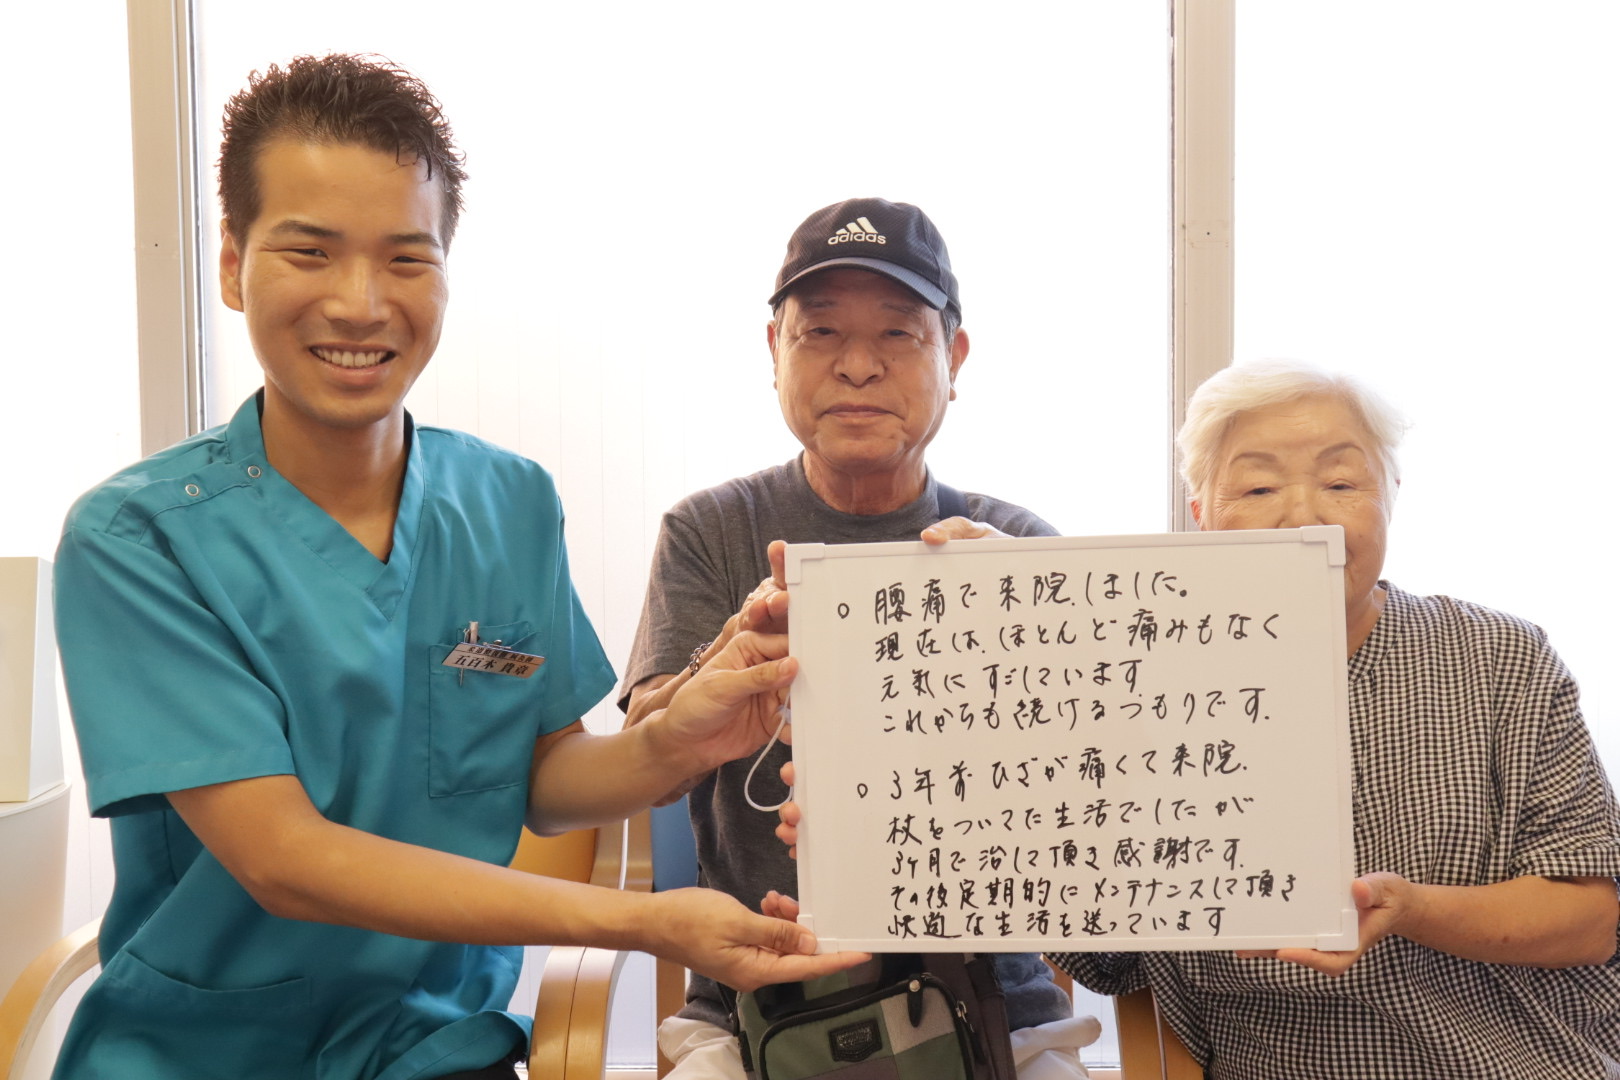 adidas
五百木 貴章
○ 腰痛で来院しました。
現在は、ほとんど痛みもなく
元気にすごしています
これからも続けるつもりです.
○ 3年前ひざが痛くて来院.
杖をついてた生活でしたが
3ヶ月で治して頂き感謝です.
その後定期的にメンテナンスして頂き
快適な生活を送っています